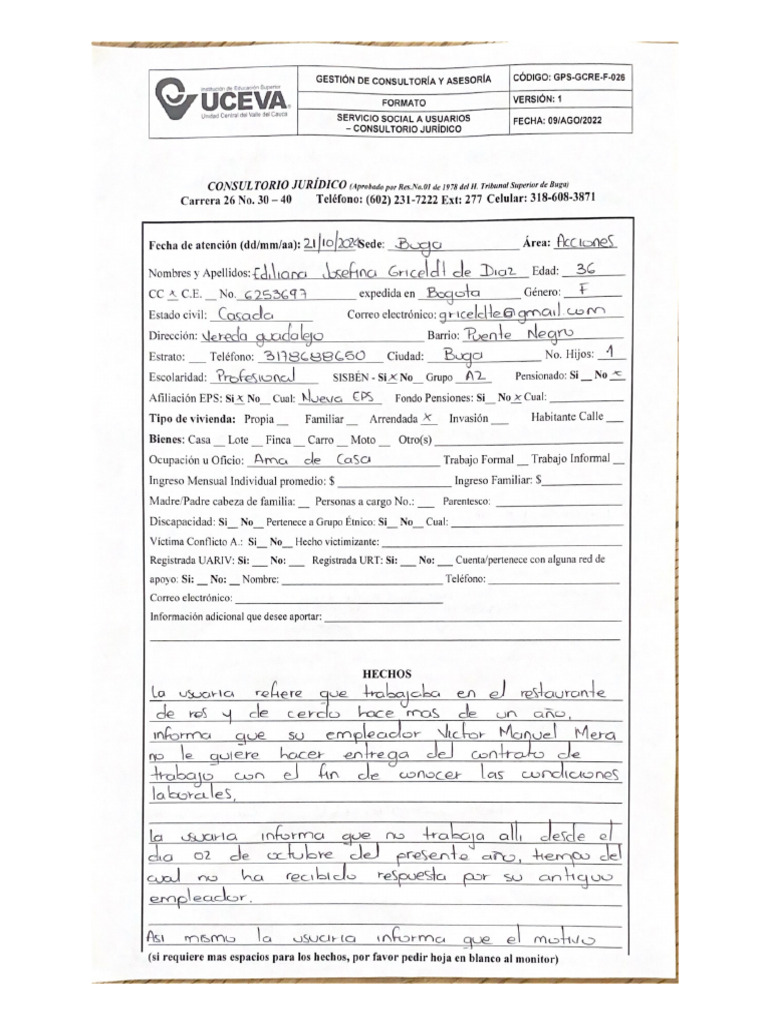 Institución de Educación Superior
UCEVA
Unidad Central del Valle del Cauca
GESTIÓN DE CONSULTORÍA Y ASESORÍA
FORMATO
SERVICIO SOCIAL A USUARIOS
– CONSULTORIO JURÍDICO
CÓDIGO: GPS-GCRE-F-026
VERSIÓN: 1
FECHA: 09/AGO/2022
CONSULTORIO JURÍDICO (Aprobado por Res.No.01 de 1978 del H. Tribunal Superior de Buga)
Carrera 26 No. 30 – 40 Teléfono: (602) 231-7222 Ext: 277 Celular: 318-608-3871
Fecha de atención (dd/mm/aa): 21/10/2024 Sede: Buga Área: Acciones
Nombres y Apellidos: Ediliana Josefina Griceldt de Diaz Edad: 36
CC x C.E. __ No. 6253697 expedida en Bogota Género: F
Estado civil: Casada Correo electrónico: griceldte@gmail com
Dirección: Vereda guadalejo Barrio: Puente Negro
Estrato: ___ Teléfono: 3178688650 Ciudad: Buga No. Hijos: 1
Escolaridad: Profesional SISBÉN - Si x No__ Grupo A2 Pensionado: Si __ No x
Afiliación EPS: Si x No__ Cual: Nueva EPS Fondo Pensiones: Si __ No x Cual: ____
Tipo de vivienda: Propia __ Familiar __ Arrendada x Invasión ___ Habitante Calle ___
Bienes: Casa __ Lote __ Finca __ Carro __ Moto __ Otro(s) ____
Ocupación u Oficio: Ama de Casa Trabajo Formal __ Trabajo Informal __
Ingreso Mensual Individual promedio: $ ____ Ingreso Familiar: $____
Madre/Padre cabeza de familia: __ Personas a cargo No.: __ Parentesco: ____
Discapacidad: Si__ No__ Pertenece a Grupo Étnico: Si __ No__ Cual: ____
Víctima Conflicto A.: Si __ No__ Hecho victimizante: ____
Registrada UARIV: Si: ___ No: ___ Registrada URT: Si: ___ No: ___ Cuenta/pertenece con alguna red de
apoyo: Si: __ No: __ Nombre: ____ Teléfono: ____
Correo electrónico: ____
Información adicional que desee aportar: ____
HECHOS
la usuaria refiere que trabajaba en el restaurante
de res y de cerdo hace mas de un año,
informa que su empleador Victor Manuel Mera
no le quiere hacer entrega del contrato de
trabajo con el fin de conocer las condiciones
laborales,
la usuaria informa que no trabaja alli desde el
dia 02 de octubre del presente año, tiempo del
cual no ha recibido respuesta por su antiguo
empleador.
Asi mismo la usuaria informa que el motivo
(si requiere mas espacios para los hechos, por favor pedir hoja en blanco al monitor)